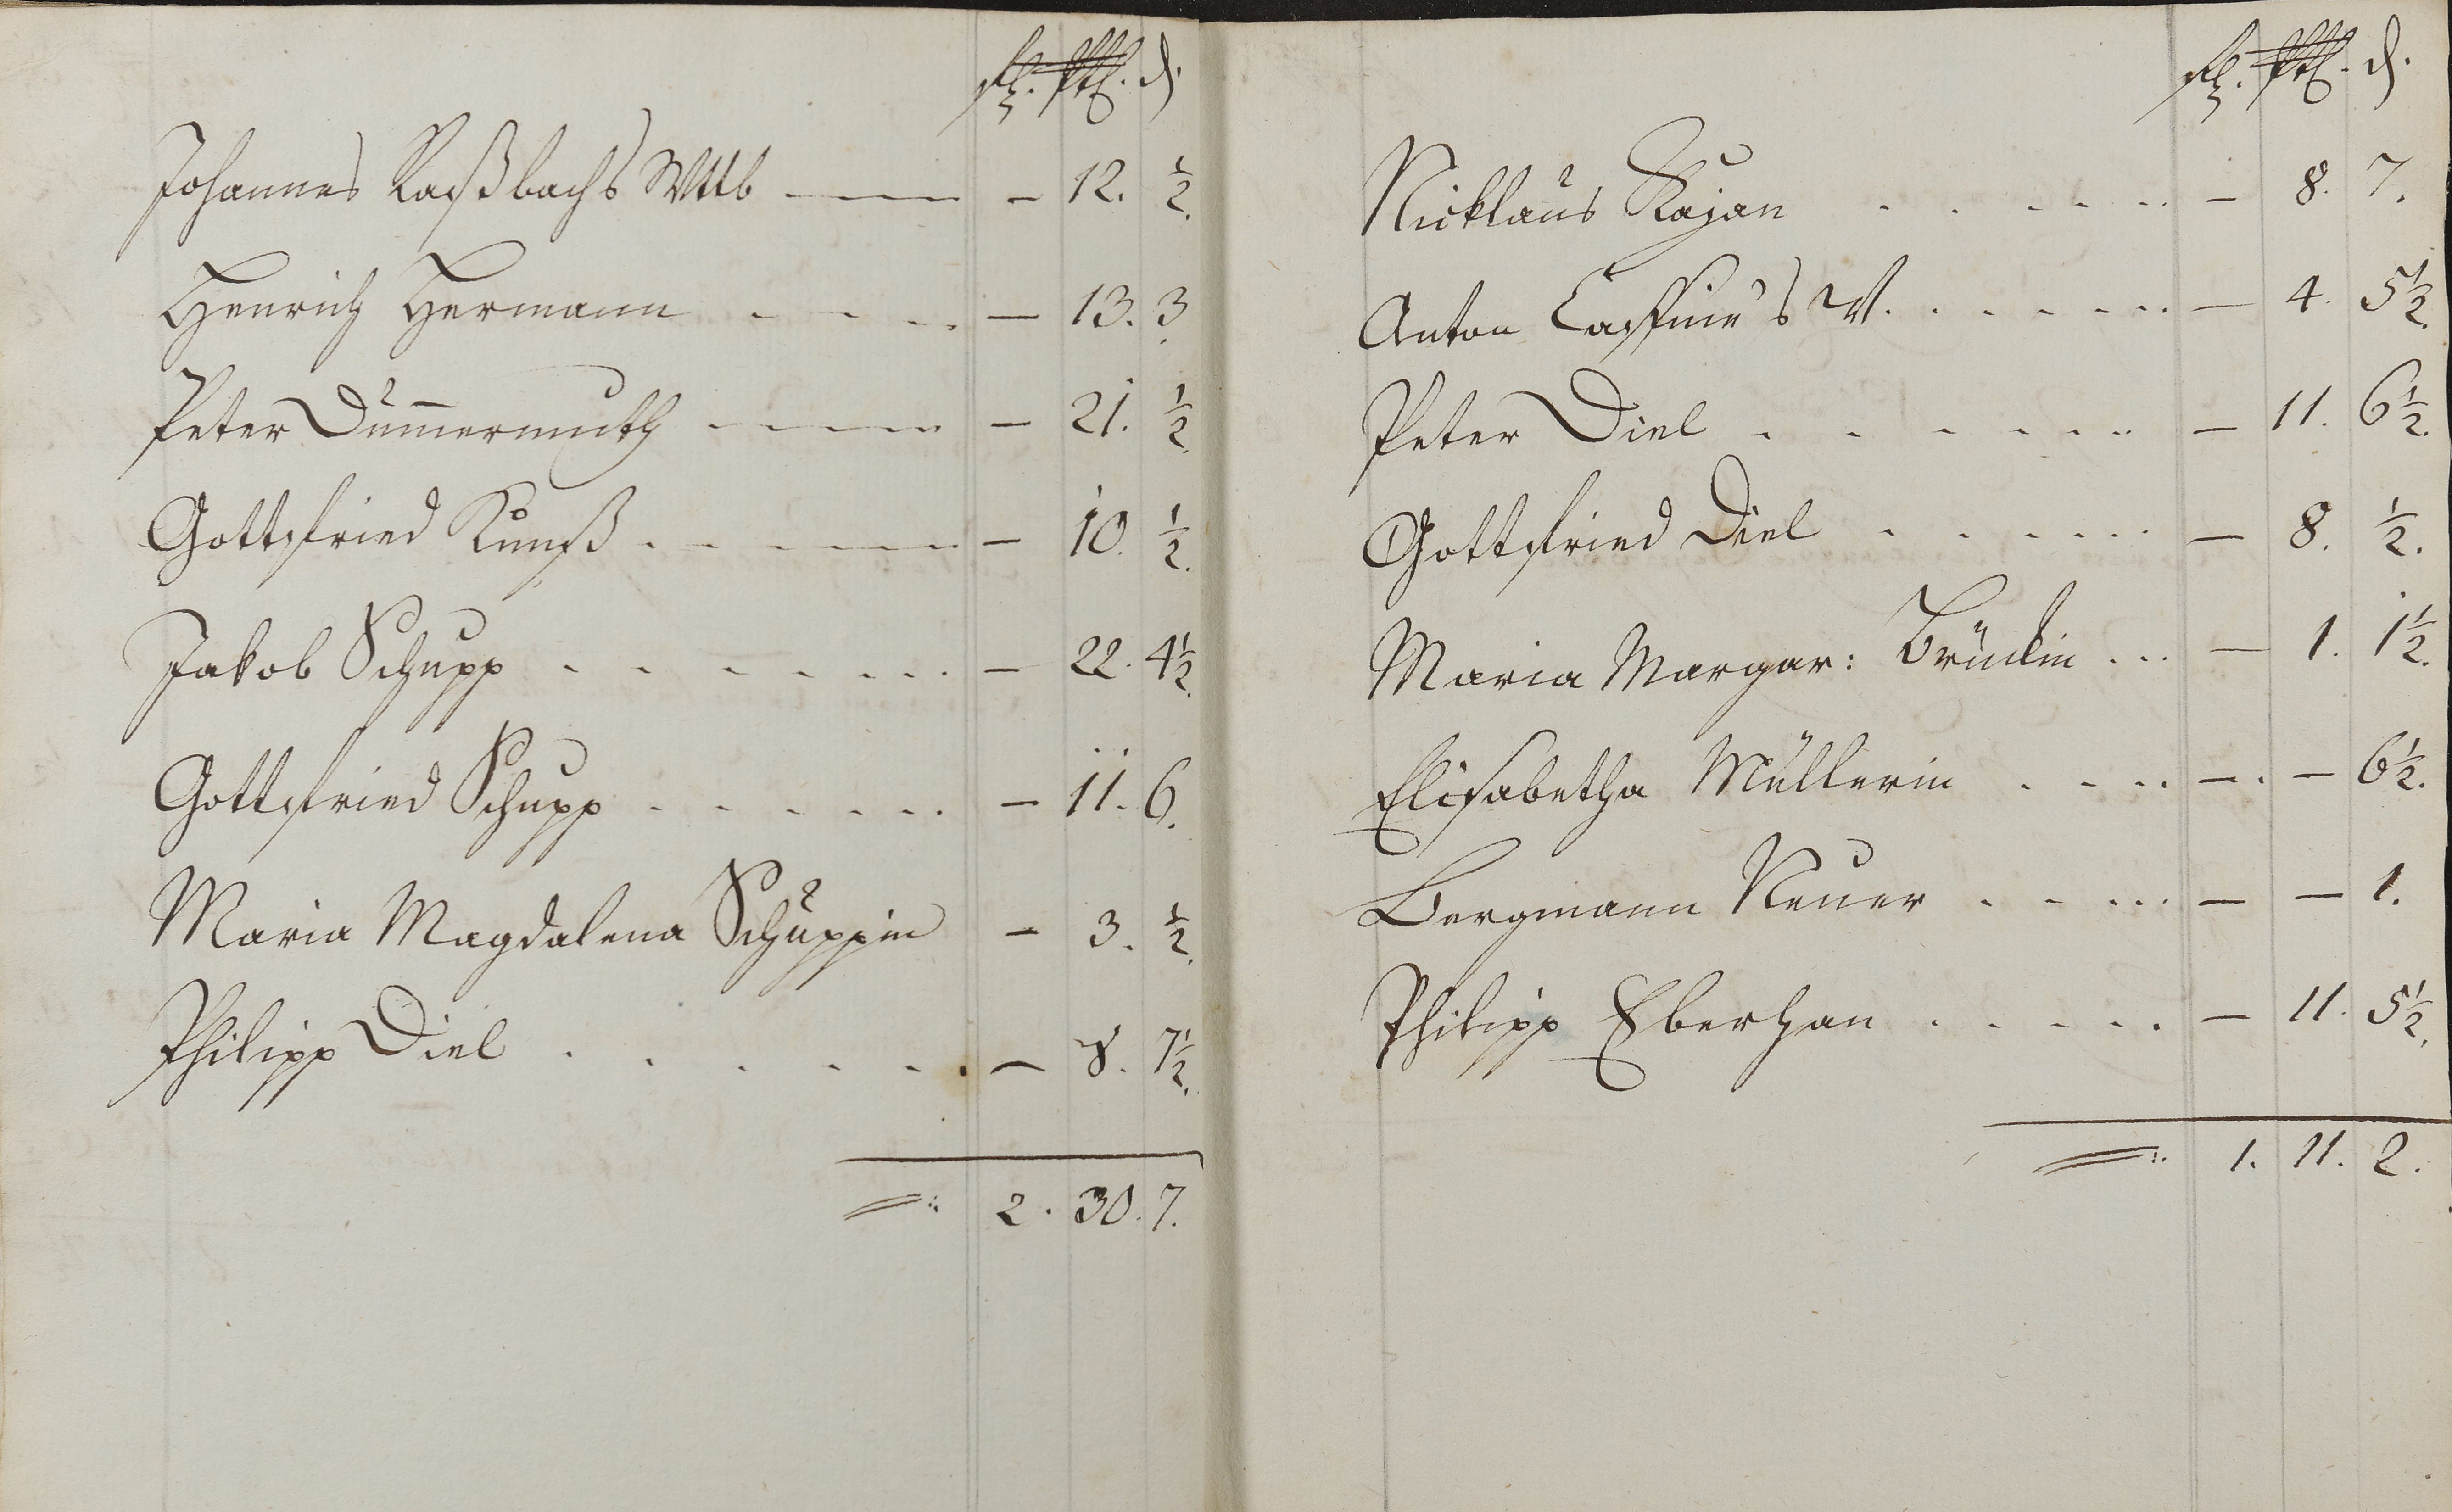 fl. Ptz. d.
Johannes Raßbachs Wttb — 12. ½.
Henrich Hermann — 13. 3.
Peter Dum̄ermuth — 21. ½.
Gottfried Kunß — 10. ½.
Jakob Schupp — 22. 4½.
Gottfried Schupp — 11. 6.
Maria Magdalena Schuppin — 3. ½.
Philipp Diel — 8. 7½.
2. 30. 7.
fl. Ptz. d.
Nicklaus Kajan — 8. 7.
Anton Cassine's W. — 4. 5½.
Peter Diel — 11. 6½.
Gottfried Diel — 8. ½.
Maria Margar: Brücklin — 1. 1½.
Elisabetha Müllerin — — 6½.
Bergmann Neuer — — 1.
Philipp Eberhan — 11. 5½.
1. 11. 2.